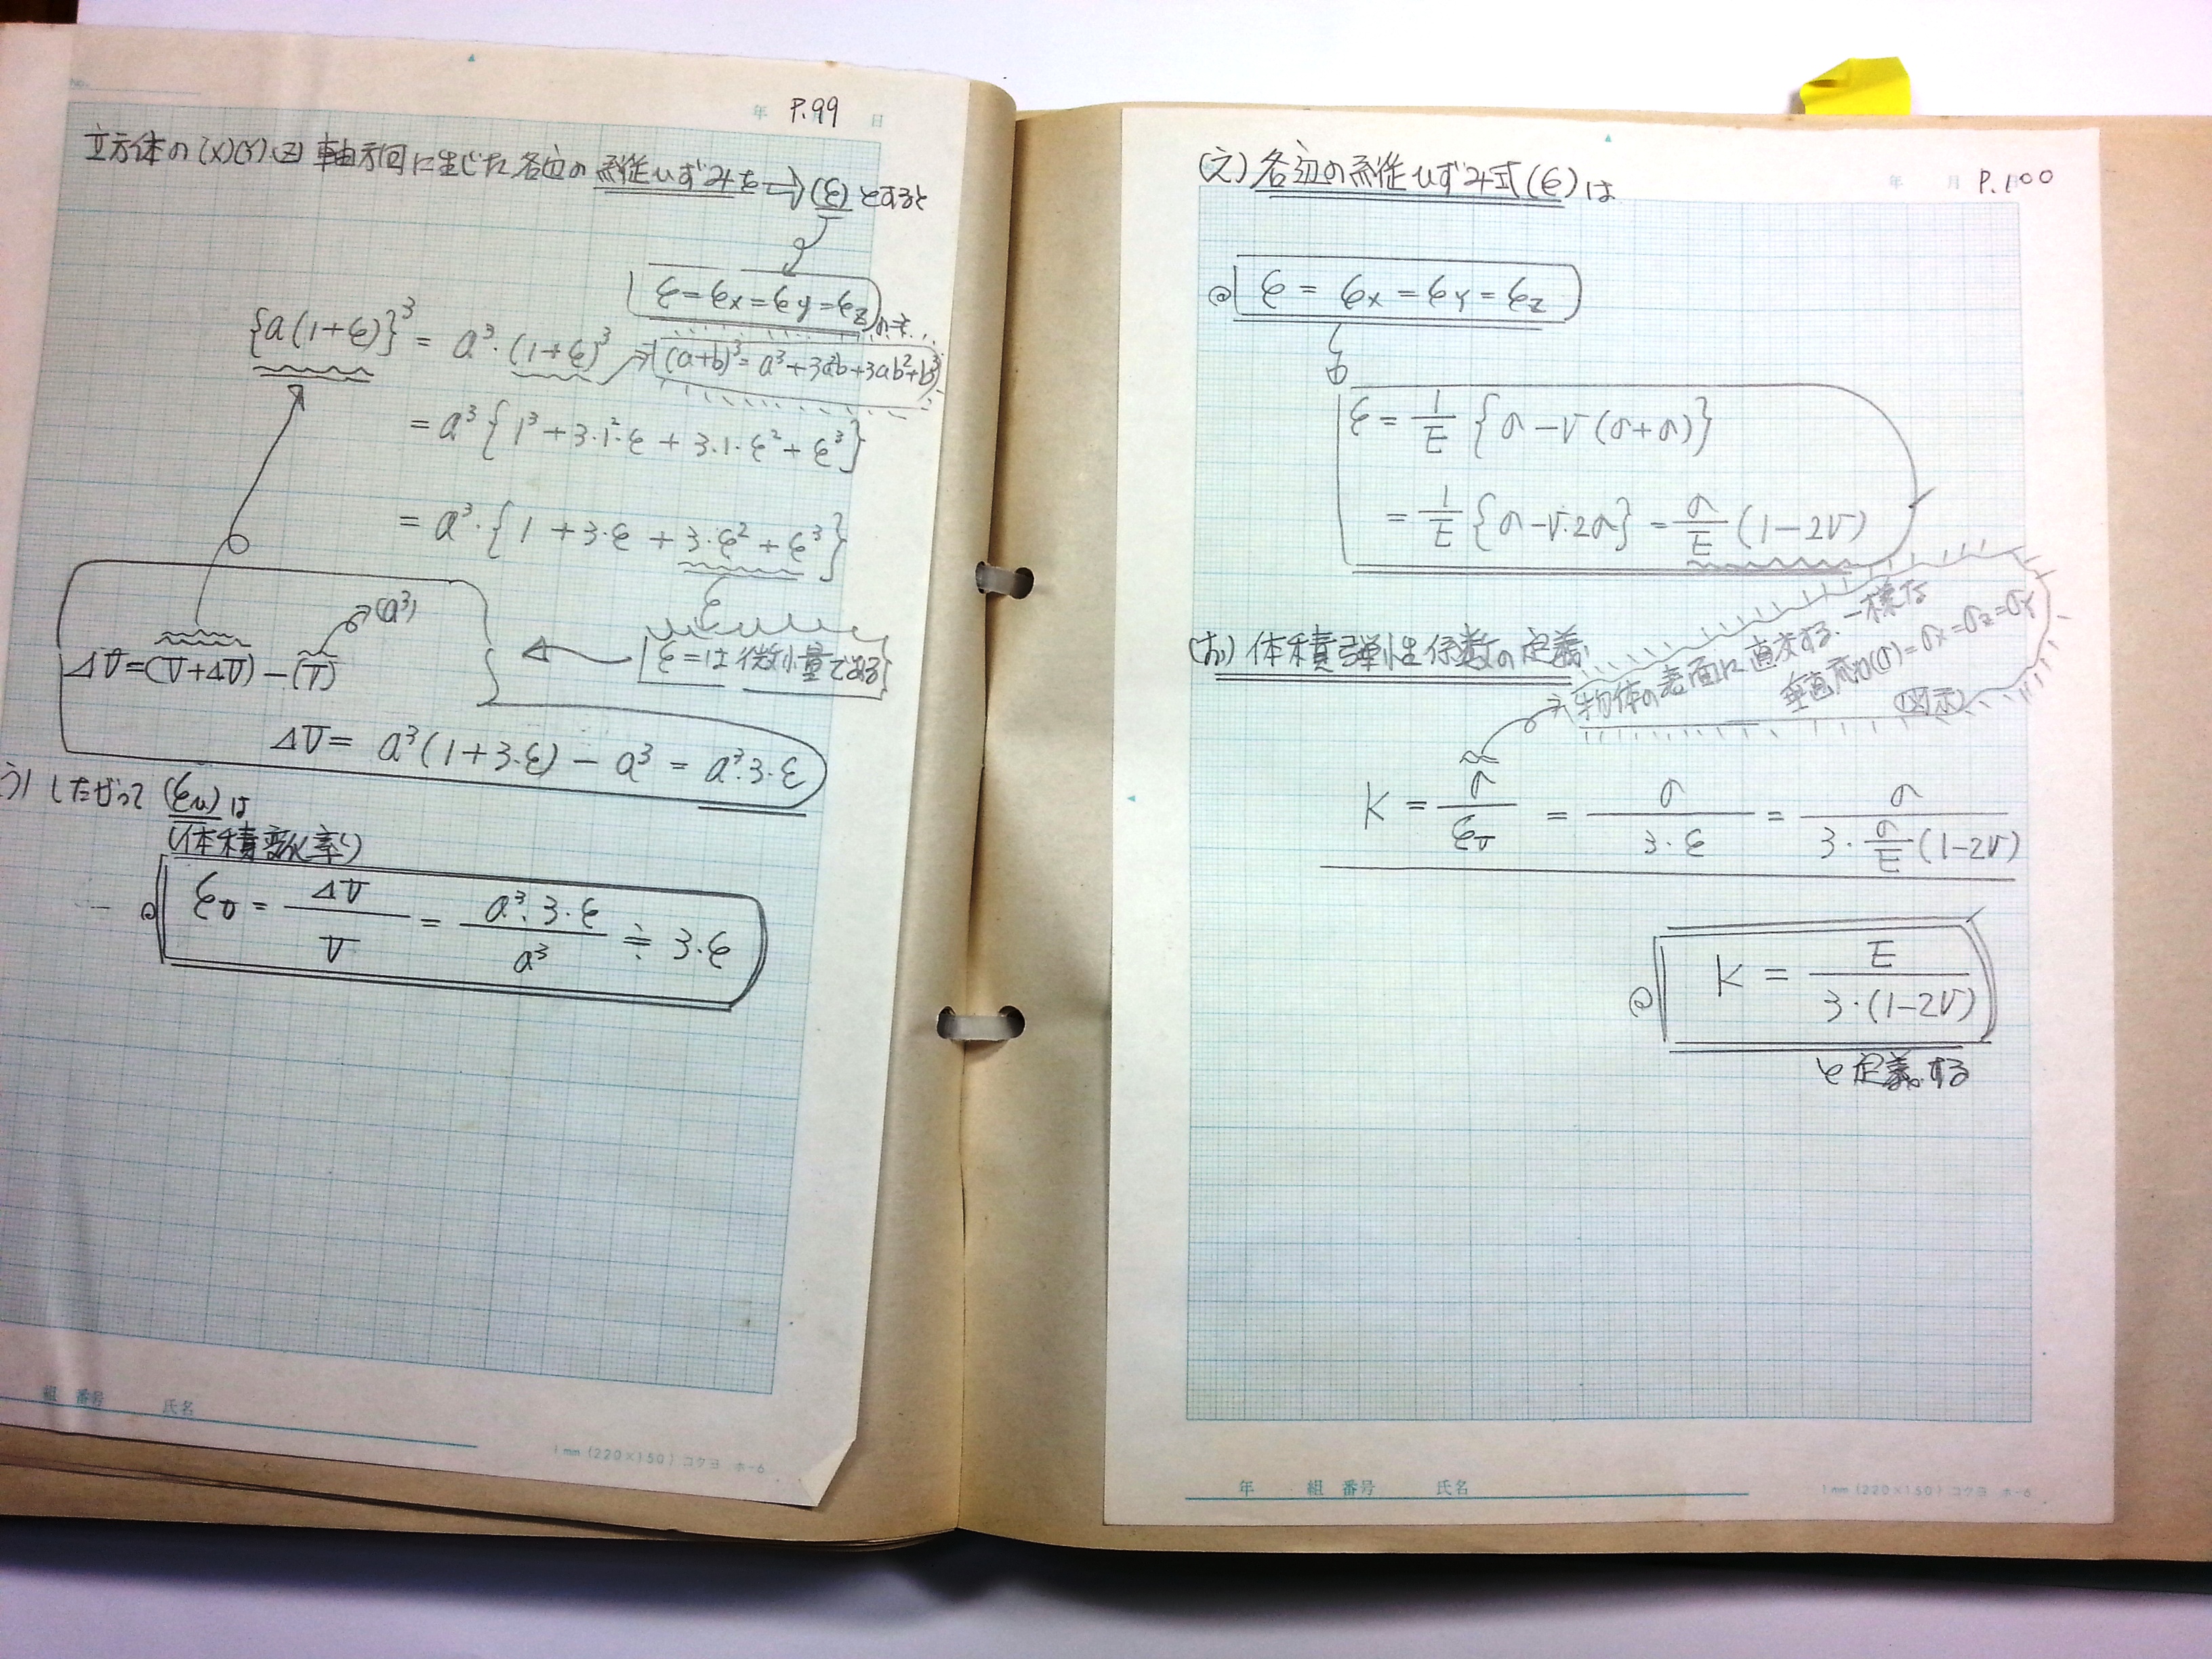 No.
年 P.99 日
立方体の(X)(Y)(Z)軸方向に生じた各辺の縦ひずみを⇒(ε)とすると
ε=εx=εy=εz
{a(1+ε)}³ = a³・(1+ε)³
(a+b)³=a³+3a²b+3ab²+b³
=a³{1³+3・1²・ε+3・1・ε²+ε³}
=a³・{1+3・ε+3・ε²+ε³}
(a³)
ΔV=(V+ΔV)-(V)
ε=は微小量である
ΔV= a³(1+3・ε)-a³=a³・3・ε
う)したがって(εv)は
(体積変化率)
εv = ΔV/V = a³・3・ε/a³ ≒ 3・ε
組 番号 氏名
1mm(220×150)コクヨ ホ-6
年 月 P.100
(え)各辺の縦ひずみ式(ε)は
ε = εx=εY=εz
ε= 1/E {σ-ν(σ+σ)}
= 1/E {σ-ν・2σ} = σ/E (1-2ν)
(お)体積弾性係数の定義
物体の表面に直交する一様な
垂直応力(σ)=σx=σz=σY
(図示)
K = σ/εv = σ/3・ε = σ/3・σ/E(1-2ν)
K = E/3・(1-2ν)
と定義する
年 組 番号 氏名
1mm(220×150)コクヨ ホ-6